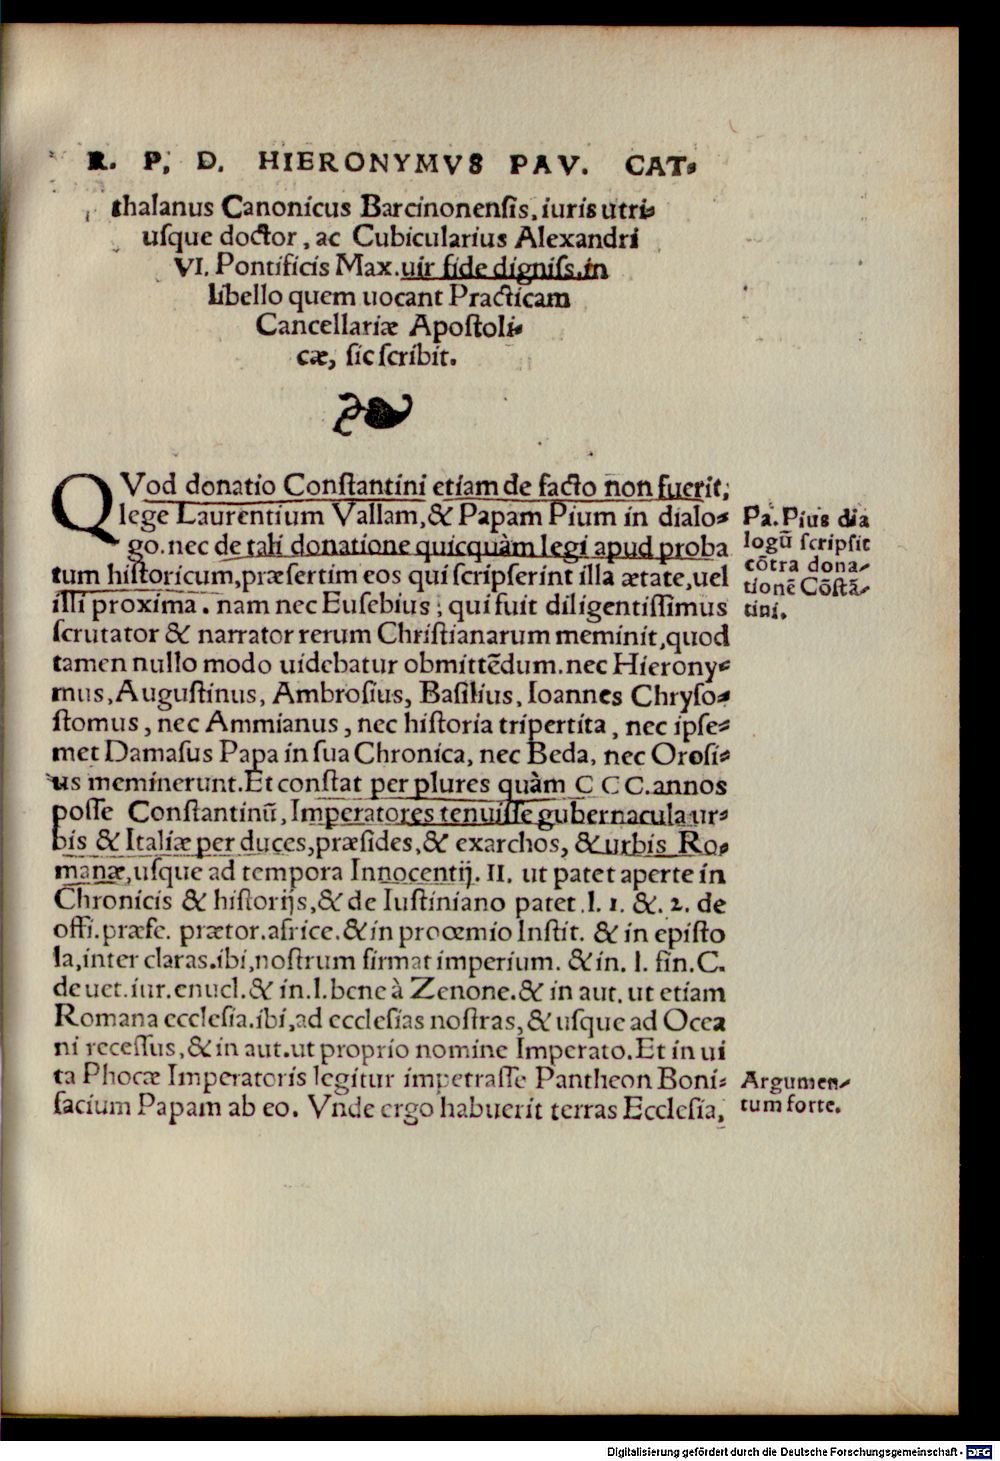 R. P. D. HIERONYMVS PAV. CAT⸗
thalanus Canonicus Barcinonenſis, iuris utri⸗
uſque doctor, ac Cubicularius Alexandri
VI. Pontificis Max. uir fide digniſs. in
libello quem uocant Practicam
Cancellariæ Apoſtoli⸗
cæ, ſic ſcribit.
QVod donatio Conſtantini etiam de facto non fuerit,
lege Laurentium Vallam, & Papam Pium in dialo⸗
go. nec de tali donatione quicquàm legi apud proba
tum hiſtoricum, præſertim eos qui ſcripſerint illa ætate, uel
illi proxima. nam nec Euſebius, qui fuit diligentiſſimus
ſcrutator & narrator rerum Chriſtianarum meminit, quod
tamen nullo modo uidebatur obmittēdum. nec Hierony⸗
mus, Auguſtinus, Ambroſius, Baſilius, Ioannes Chryſo⸗
ſtomus, nec Ammianus, nec hiſtoria tripertita, nec ipſe⸗
met Damaſus Papa in ſua Chronica, nec Beda, nec Oroſi⸗
us meminerunt. Et conſtat per plures quàm CCC. annos
poſſe Conſtantinū, Imperatores tenuiſſe gubernacula ur⸗
bis & Italiæ per duces, præſides, & exarchos, & urbis Ro⸗
manæ, uſque ad tempora Innocentij. II. ut patet aperte in
Chronicis & hiſtorijs, & de Iuſtiniano patet. l. 1. &. 2. de
offi. præfe. prætor. africe. & in prooemio Inſtit. & in epiſto
la, inter claras. ibi, noſtrum firmat imperium. & in. l. fin. C.
de uet. iur. enucl. & in. l. bene à Zenone. & in aut. ut etiam
Romana eccleſia. ibi, ad eccleſias noſtras, & uſque ad Ocea
ni receſſus, & in aut. ut proprio nomine Imperato. Et in ui
ta Phocæ Imperatoris legitur impetraſſe Pantheon Boni⸗
facium Papam ab eo. Vnde ergo habuerit terras Eccleſia,
Pa. Pius dia
logū ſcripſit
cōtra dona⸗
tionē Cōſtā⸗
tini.
Argumen⸗
tum forte.
Digitalisierung gefördert durch die Deutsche Forschungsgemeinschaft - DFG